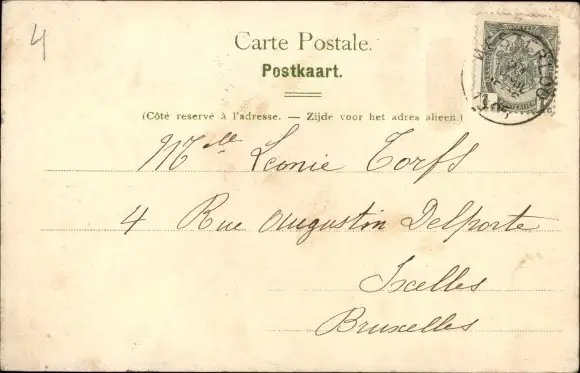 4
Carte Postale.
Postkaart.
(Côté reservé à l'adresse. — Zijde voor het adres alleen.)
Mlle Leonie Torfs
4 Rue Augustin Delporte
Ixelles
Bruxelles